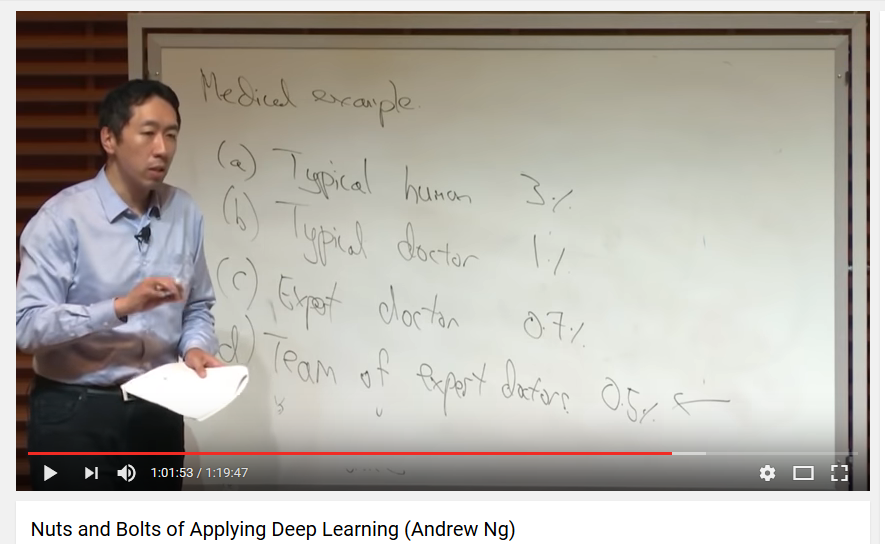 Medical example.
(a) Typical human 3%
(b) Typical doctor 1%
(c) Expert doctor 0.7%
(d) Team of expert doctors 0.5% ←
1:01:53 / 1:19:47
Nuts and Bolts of Applying Deep Learning (Andrew Ng)